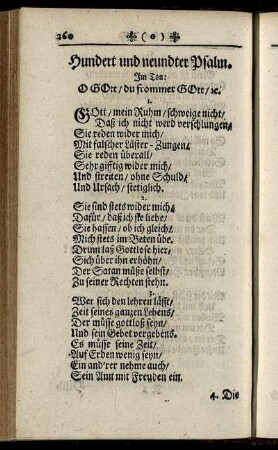 260 ( o )
Hundert und neundter Psalm.
Im Ton:
O GOtt / du frommer GOtt / ꝛc.
1.
GOtt / mein Ruhm / schweige nicht /
Daß ich nicht werd verschlungen /
Sie reden wider mich /
Mit falscher Läster-Zungen /
Sie reden überall /
Sehr gifftig wider mich /
Und streiten / ohne Schuld /
Und Ursach / stetiglich.
2.
Sie sind stets wider mich /
Dafür / daß ich sie liebe /
Sie hassen / ob ich gleich /
Mich stets im Beten übe.
Drum laß Gottlose hier /
Sich über ihn erhöhn /
Der Satan müße selbst /
Zu seiner Rechten stehn.
3.
Wer sich den lehren lässt /
Zeit seines ganzen Lebens /
Der müsse gottloß seyn /
Und sein Gebet vergebens.
Es müsse seine Zeit /
Auf Erden wenig seyn /
Ein and'rer nehme auch /
Sein Amt mit Freuden ein.
4. Die